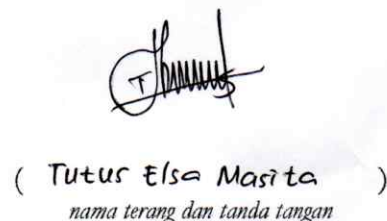 ( Tutus Elsa Masita )
nama terang dan tanda tangan